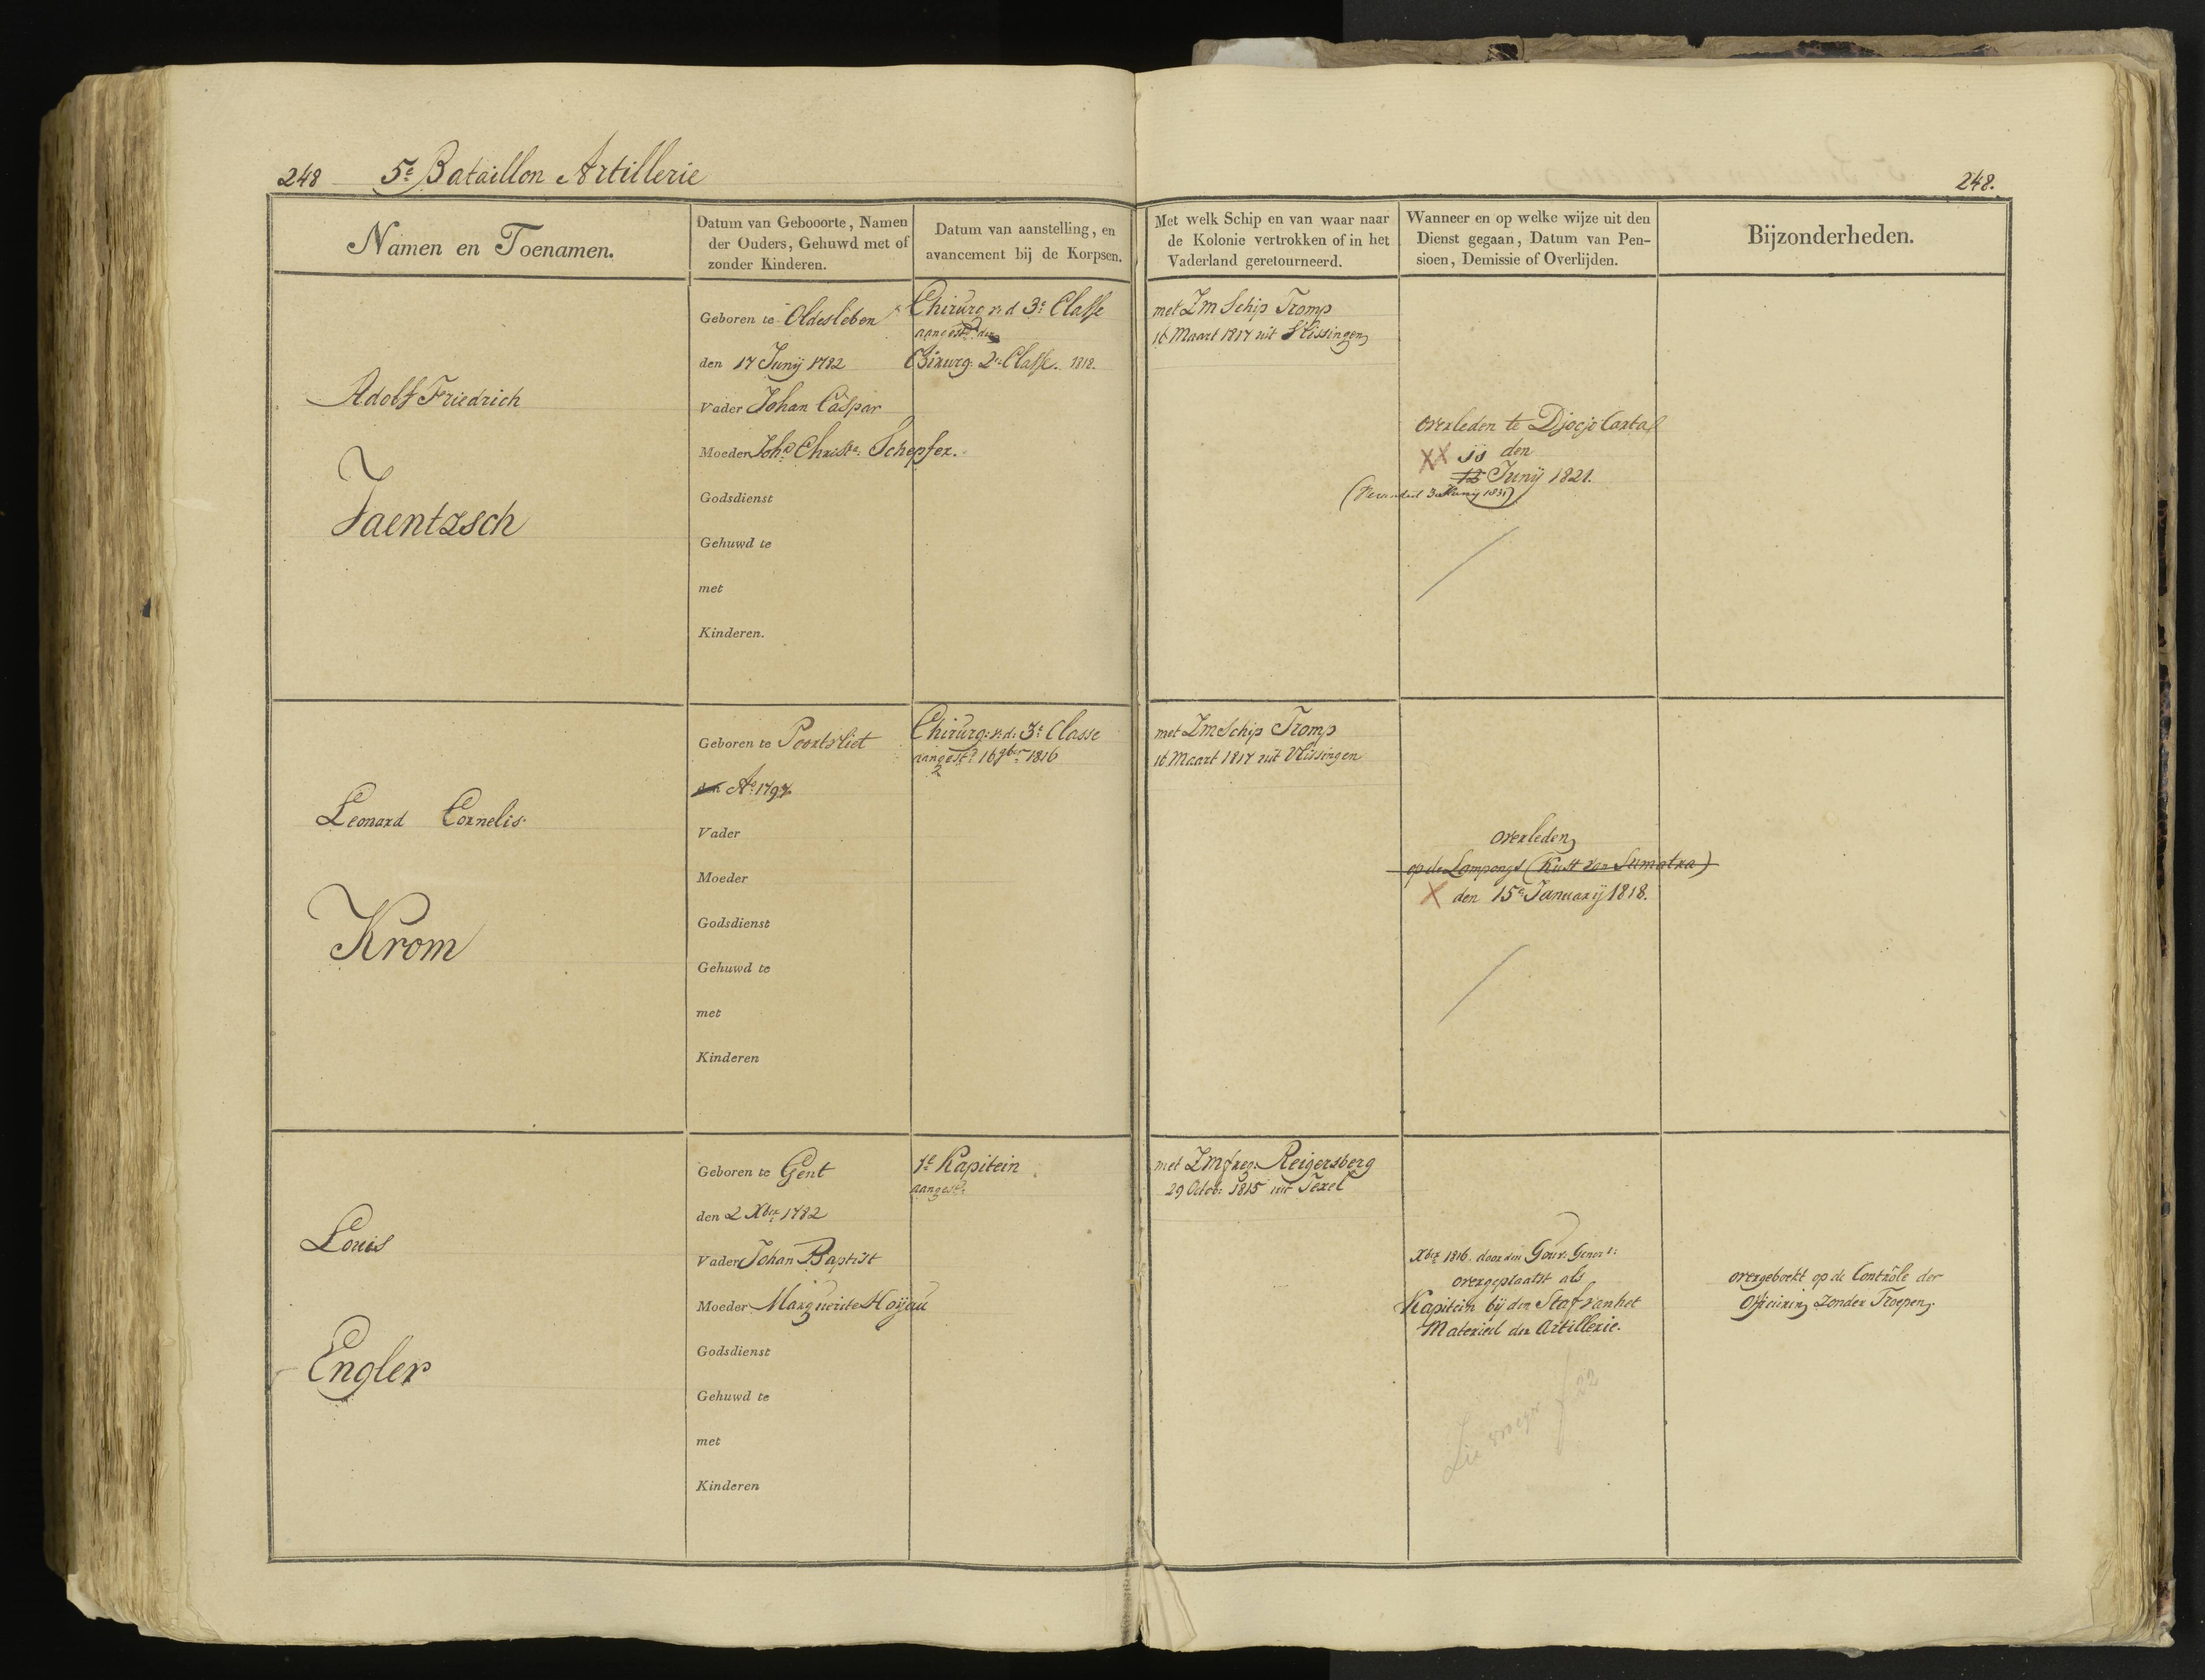 248 5e Bataillon Artillerie
248.
Namen en Toenamen.
Datum van Gebooorte, Namen
der Ouders, Gehuwd met of
zonder Kinderen.
Datum van aanstelling, en
avancement bij de Korpsen.
Met welk Schip en van waar naar
de Kolonie vertrokken of in het
Vaderland geretourneerd.
Wanneer en op welke wijze uit den
Dienst gegaan, Datum van Pen-
sioen, Demissie of Overlijden.
Bijzonderheden.
Adolf Friedrich
Jaentzsch
Geboren te Oldesleben
den 17 Junij 1782
Vader Johan Caspar
Moeder Joha Christa: Schepfer.
Godsdienst
Gehuwd te
met
Kinderen.
Chirurg n.d 3e Classe
aangestd den
Chirurg. 2e Classe. 1818.
met Zm Schip Tromp
16 Maart 1817 uit Vlissingen
overleden te Djocjo Carta
XX is den
12 Junij 1821.
Leonard Cornelis.
Krom
Geboren te Poortvliet
den Ao 1797.
Vader
Moeder
Godsdienst
Gehuwd te
met
Kinderen
Chirurg: n.d. 3e Classe
aangestd 16 9ber 1816
2
met Zm Schip Tromp
16 Maart 1817 uit Vlissingen
overleden
op de Lampongs (Kust van Sumatra)
X den 15e Januarij 1818.
Louis
Engler
Geboren te Gent
den 2 Xber 1782
Vader Johan Baptist
Moeder Marguerite Hoyau
Godsdienst
Gehuwd te
met
Kinderen
1e Kapitein
aangestd
met Zm freg: Reigersberg
29 Octob: 1815 uit Texel
Xber 1816. door den Gouv: Generl:
overgeplaatst als
Kapitein bij den Staf van het
Materieel der Artillerie.
Zie vroeger f 22
overgeboekt op de Contrôle der
Officieren zonder Troepen.